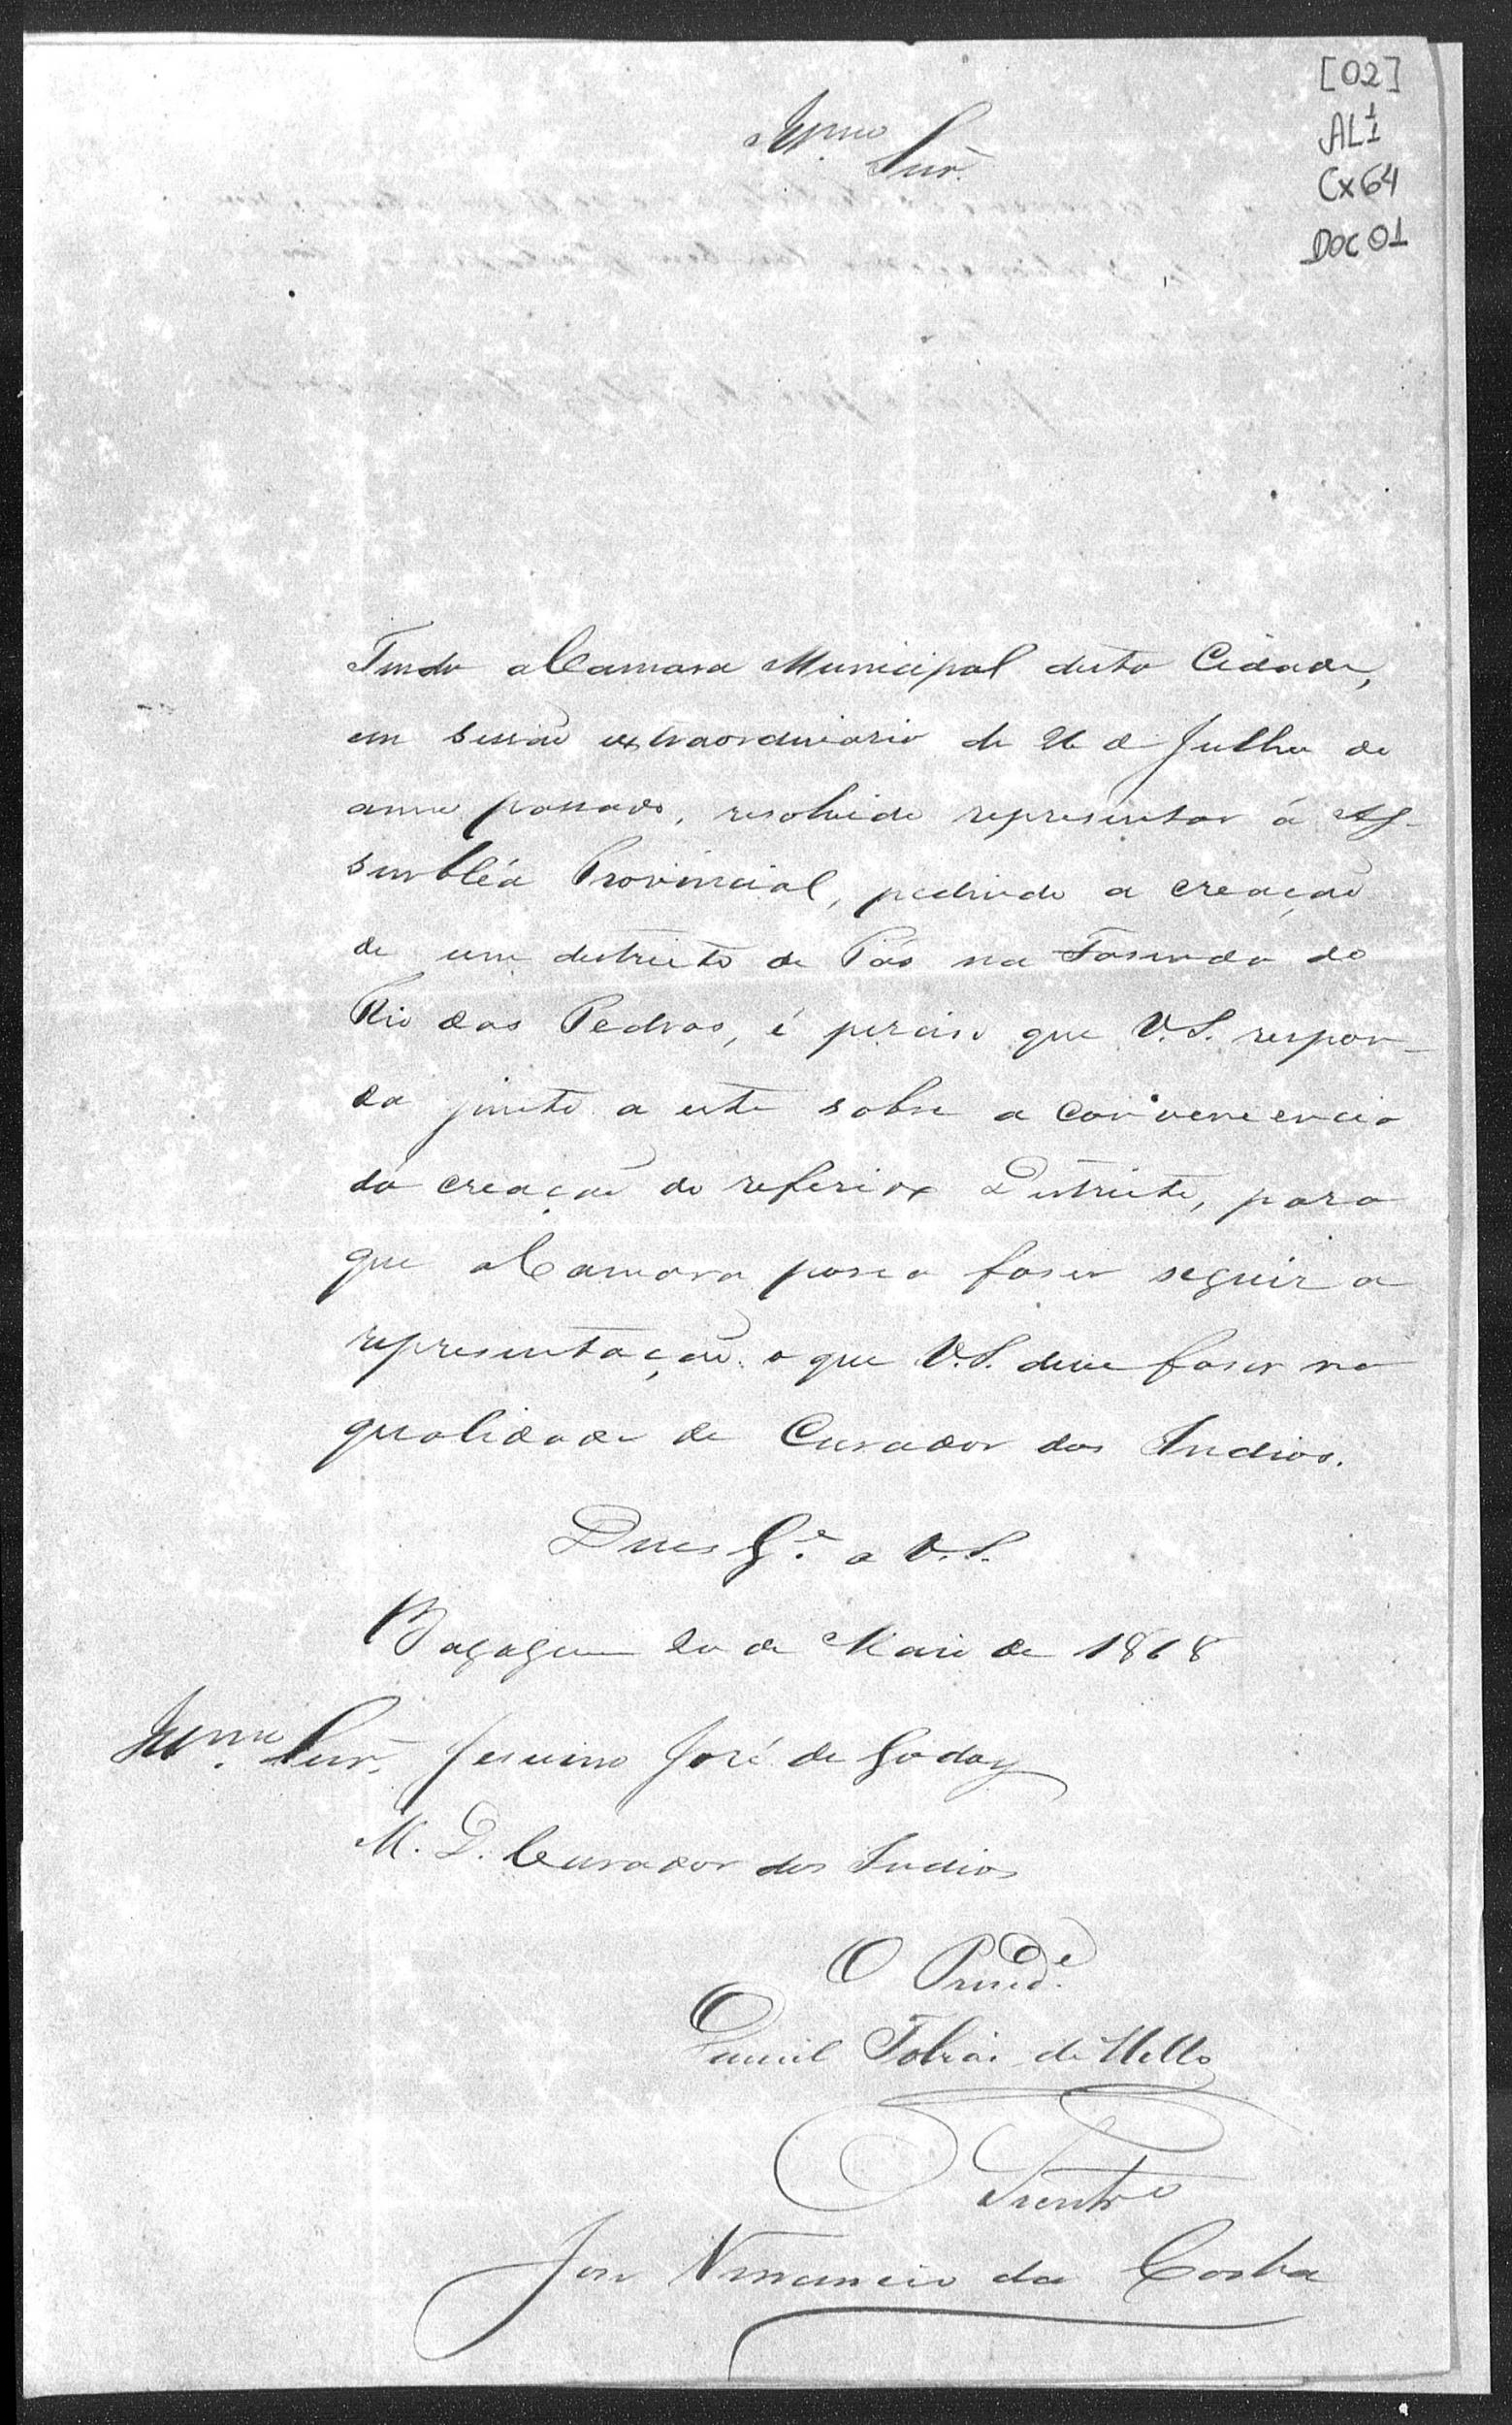 [02]
AL 1/1
Cx 64
DOC 01
Illmo
Snr.
Tendo a Camara Municipal desta Cidade,
em sessão extraordinaria de 26 de Julho do
anno passado, resolvido representar á As-
sembléa Provincial, pedindo a creação
de um destricto de Pas na Fasenda do
Rio das Pedras, é perciso que V.S. respon-
da junto a este sobre a conveniencia
da creação do referido Destricto, para
que a Camara possa faser seguir a
representação o que V.S. deve faser na
qualidade de Curador dos Indios.
Deus G.e a V.S.
Bagagem 20 de Maio de 1868
Illmo. Snr. Jesuino José de Godoy
M. D. Curador dos Indios
O Presid.e
Daniel Tobias de Mello
José Venancio da Costa